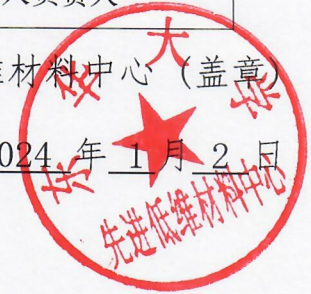 维材料中心（盖章）
024 年 1 月 2 日
东华大学
先进低维材料中心